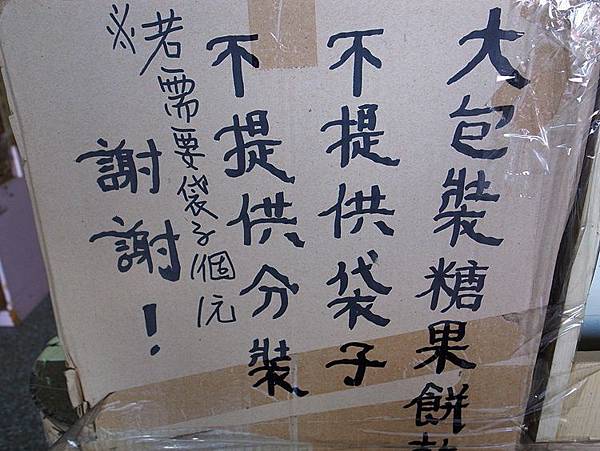 大包裝糖果餅乾
不提供袋子
不提供分裝
※若需要袋子1個1元
謝謝！